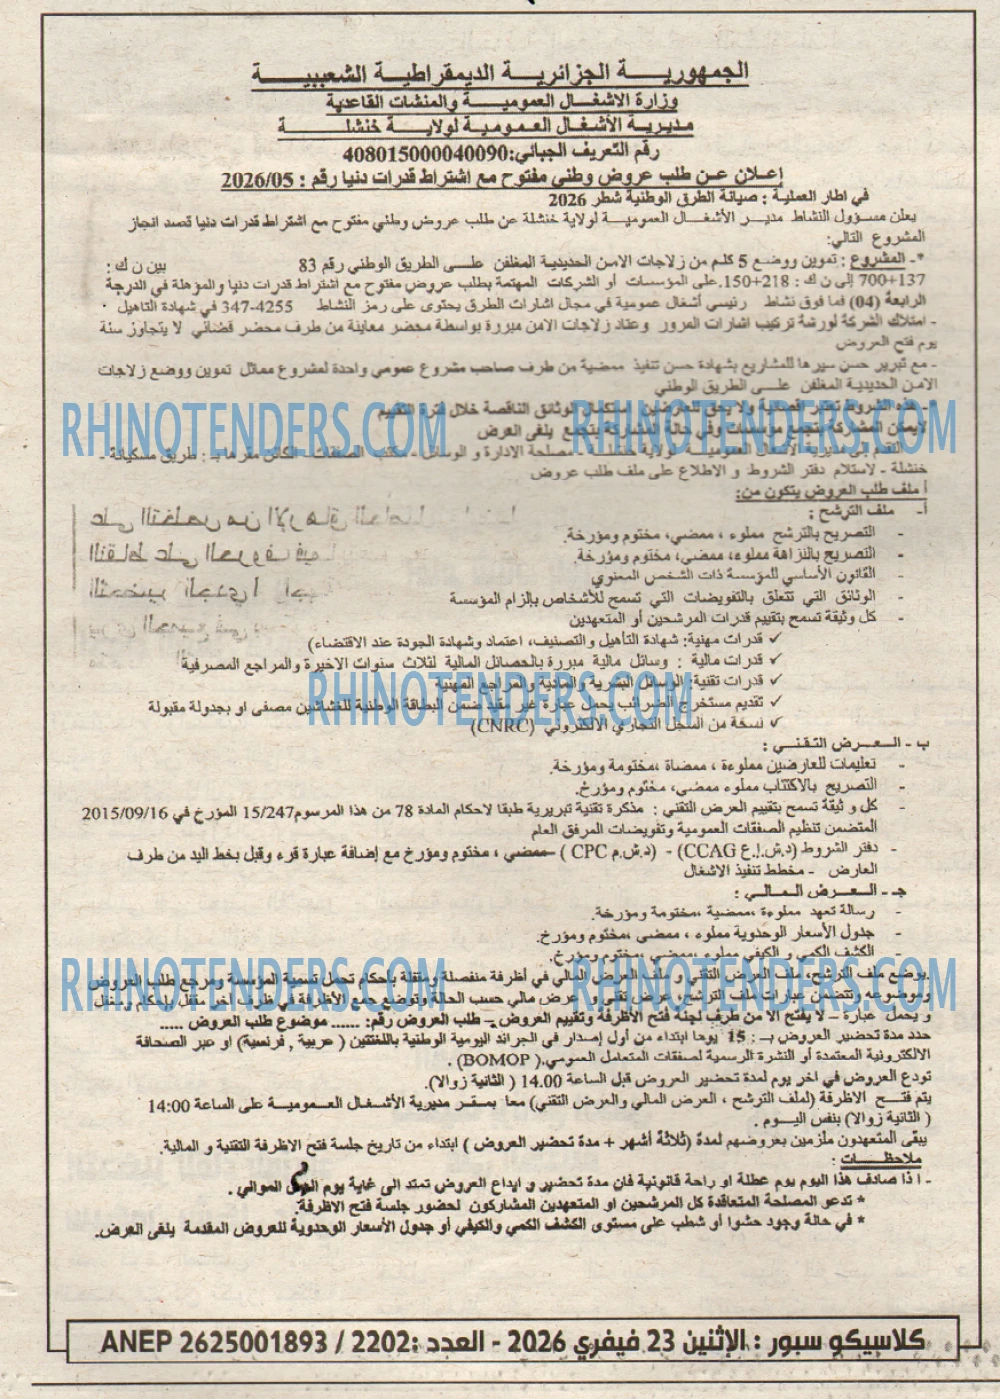 الجمهورية الجزائرية الديمقراطية الشعبية
وزارة الاشغال العمومية والمنشات القاعدية
مديرية الأشغال العمومية لولاية خنشلة
رقم التعريف الجبائي:408015000040090
إعلان عن طلب عروض وطني مفتوح مع اشتراط قدرات دنيا رقم : 2026/05
في اطار العملية : صيانة الطرق الوطنية شطر 2026
يعلن مسؤول النشاط مدير الأشغال العمومية لولاية خنشلة عن طلب عروض وطني مفتوح مع اشتراط قدرات دنيا قصد انجاز
المشروع التالي:
*- المشروع : تموين ووضع 5 كلم من زلاجات الامن الحديدية المغلفن على الطريق الوطني رقم 83 بين ن ك :
137+700 إلى ن ك : 218+150.على المؤسسات أو الشركات المهتمة بطلب عروض مفتوح مع اشتراط قدرات دنيا و المؤهلة في الدرجة
الرابعة (04) فما فوق نشاط رئيسي أشغال عمومية في مجال اشارات الطرق يحتوى على رمز النشاط 4255-347 في شهادة التاهيل
- امتلاك الشركة لورشة تركيب اشارات المرور وعتاد زلاجات الامن مبررة بواسطة محضر معاينة من طرف محضر قضائي لا يتجاوز سنة
يوم فتح العروض
- مع تبرير حسن سيرها للمشاريع بشهادة حسن تنفيذ ممضية من طرف صاحب مشروع عمومي واحدة لمشروع مماثل تموين ووضع زلاجات
الامن الحديدية المغلفن على الطريق الوطني
* هذه الشروط تعتبر إقصائية ولا يحق للعارضين استكمال الوثائق الناقصة خلال فترة التقييم
لايمكن المشاركة بتجمع مؤسسات وفي حالة المشاركة بتجمع يلغى العرض
التقدم إلى مديرية الأشغال العمومية لولاية خنشلة - مصلحة الادارة و الوسائل - مكتب الصفقات - الكائن مقرها بـ : طريق مسكيانة -
خنشلة - لاستلام دفتر الشروط و الاطلاع على ملف طلب عروض
أ ملف طلب العروض يتكون من:
أ- ملف الترشح :
- التصريح بالترشح مملوء ، ممضي، مختوم ومؤرخة.
- التصريح بالنزاهة مملوء، ممضي، مختوم ومؤرخة.
- القانون الأساسي للمؤسسة ذات الشخص المعنوي
- الوثائق التي تتعلق بالتفويضات التي تسمح للأشخاص بإلزام المؤسسة
- كل وثيقة تسمح بتقييم قدرات المرشحين أو المتعهدين
✓ قدرات مهنية: شهادة التأهيل والتصنيف، اعتماد وشهادة الجودة عند الاقتضاء)
✓ قدرات مالية : وسائل مالية مبررة بالحصائل المالية لثلاث سنوات الاخيرة والمراجع المصرفية
✓ قدرات تقنية: الوسائل البشرية والمادية والمراجع المهنية
✓ تقديم مستخرج الضرائب يحمل عبارة غير مقيد ضمن البطاقة الوطنية للغشاشين مصفى او بجدولة مقبولة
✓ نسخة من السجل التجاري الالكتروني (CNRC)
ب - العرض التقني :
- تعليمات للعارضين مملوءة ، ممضاة ،مختومة ومؤرخة.
- التصريح بالاكتتاب مملوء ممضي، مختوم ومؤرخ.
- كل و ثيقة تسمح بتقييم العرض التقني : مذكرة تقنية تبريرية طبقا لاحكام المادة 78 من هذا المرسوم15/247 المؤرخ في 2015/09/16
المتضمن تنظيم الصفقات العمومية وتفويضات المرفق العام
- دفتر الشروط (د.ش.إ.ع CCAG) - (د.ش.م CPC ) –ممضي ، مختوم ومؤرخ مع إضافة عبارة قرء وقبل بخط اليد من طرف
العارض - مخطط تنفيذ الاشغال
جـ - العرض المالي :
- رسالة تعهد مملوءة ،ممضية ،مختومة ومؤرخة.
- جدول الأسعار الوحدوية مملوء ، ممضي ،مختوم ومؤرخ.
- الكشف الكمي و الكيفي مملوء ،ممضي ،مختوم ومؤرخ.
يوضع ملف الترشح، ملف العرض التقني و ملف العرض المالي في أظرفة منفصلة ومقفلة بإحكام تحمل تسمية المؤسسة ومرجع طلب العروض
وموضوعه وتتضمن عبارات ملف الترشح، عرض تقني و عرض مالي حسب الحالة وتوضع جمع الأظرفة في ظرف آخر مقفل بإحكام ومغفل
و يحمل عبارة – لا يفتح الا من طرف لجنة فتح الأظرفة وتقييم العروض – طلب العروض رقم: ...... موضوع طلب العروض .....
حدد مدة تحضير العروض بـ : 15 يوما ابتداء من أول إصدار في الجرائد اليومية الوطنية باللغتين ( عربية , فرنسية) او عبر الصحافة
الالكترونية المعتمدة أو النشرة الرسمية لصفقات المتعامل العمومي.( BOMOP) .
تودع العروض في اخر يوم لمدة تحضير العروض قبل الساعة 14.00 ( الثانية زوالا).
يتم فتح الاظرفة (لملف الترشح ، العرض المالي والعرض التقني) معا بمقر مديرية الأشغال العمومية على الساعة 14:00
( الثانية زوالا) بنفس اليوم .
يبقى المتعهدون ملزمين بعروضهم لمدة (ثلاثة أشهر + مدة تحضير العروض ) ابتداء من تاريخ جلسة فتح الاظرفة التقنية و المالية.
ملاحظات :
- ا ذا صادف هذا اليوم يوم عطلة او راحة قانونية فان مدة تحضير و ايداع العروض تمتد الى غاية يوم العمل الموالي .
* تدعو المصلحة المتعاقدة كل المرشحين او المتعهدين المشاركون لحضور جلسة فتح الاظرفة.
* في حالة وجود حشوا أو شطب على مستوى الكشف الكمي والكيفي أو جدول الأسعار الوحدوية للعروض المقدمة يلغى العرض.
كلاسيكو سبور : الإثنين 23 فيفري 2026 - العدد :2202 / ANEP 2625001893
RHINOTENDERS.COM
RHINOTENDERS.COM
RHINOTENDERS.COM
RHINOTENDERS.COM
RHINOTENDERS.COM